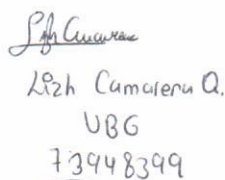 Lizh Camarena Q.
UBG
73948399